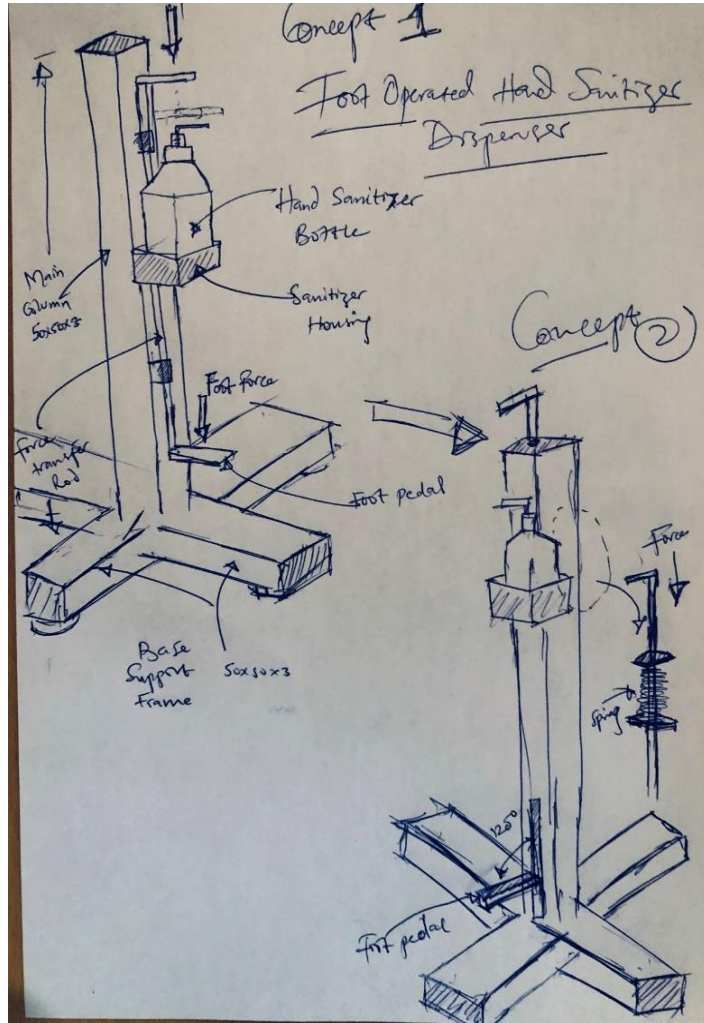 Concept 1
Foot Operated Hand Sanitizer
Dispenser
Hand Sanitizer
Bottle
Main
Column
50x50x3
Sanitizer
Housing
Foot Force
Force
transfer
Rod
Foot pedal
Base
Support
Frame
50x50x3
Concept 2
Force
Spring
120°
Foot pedal